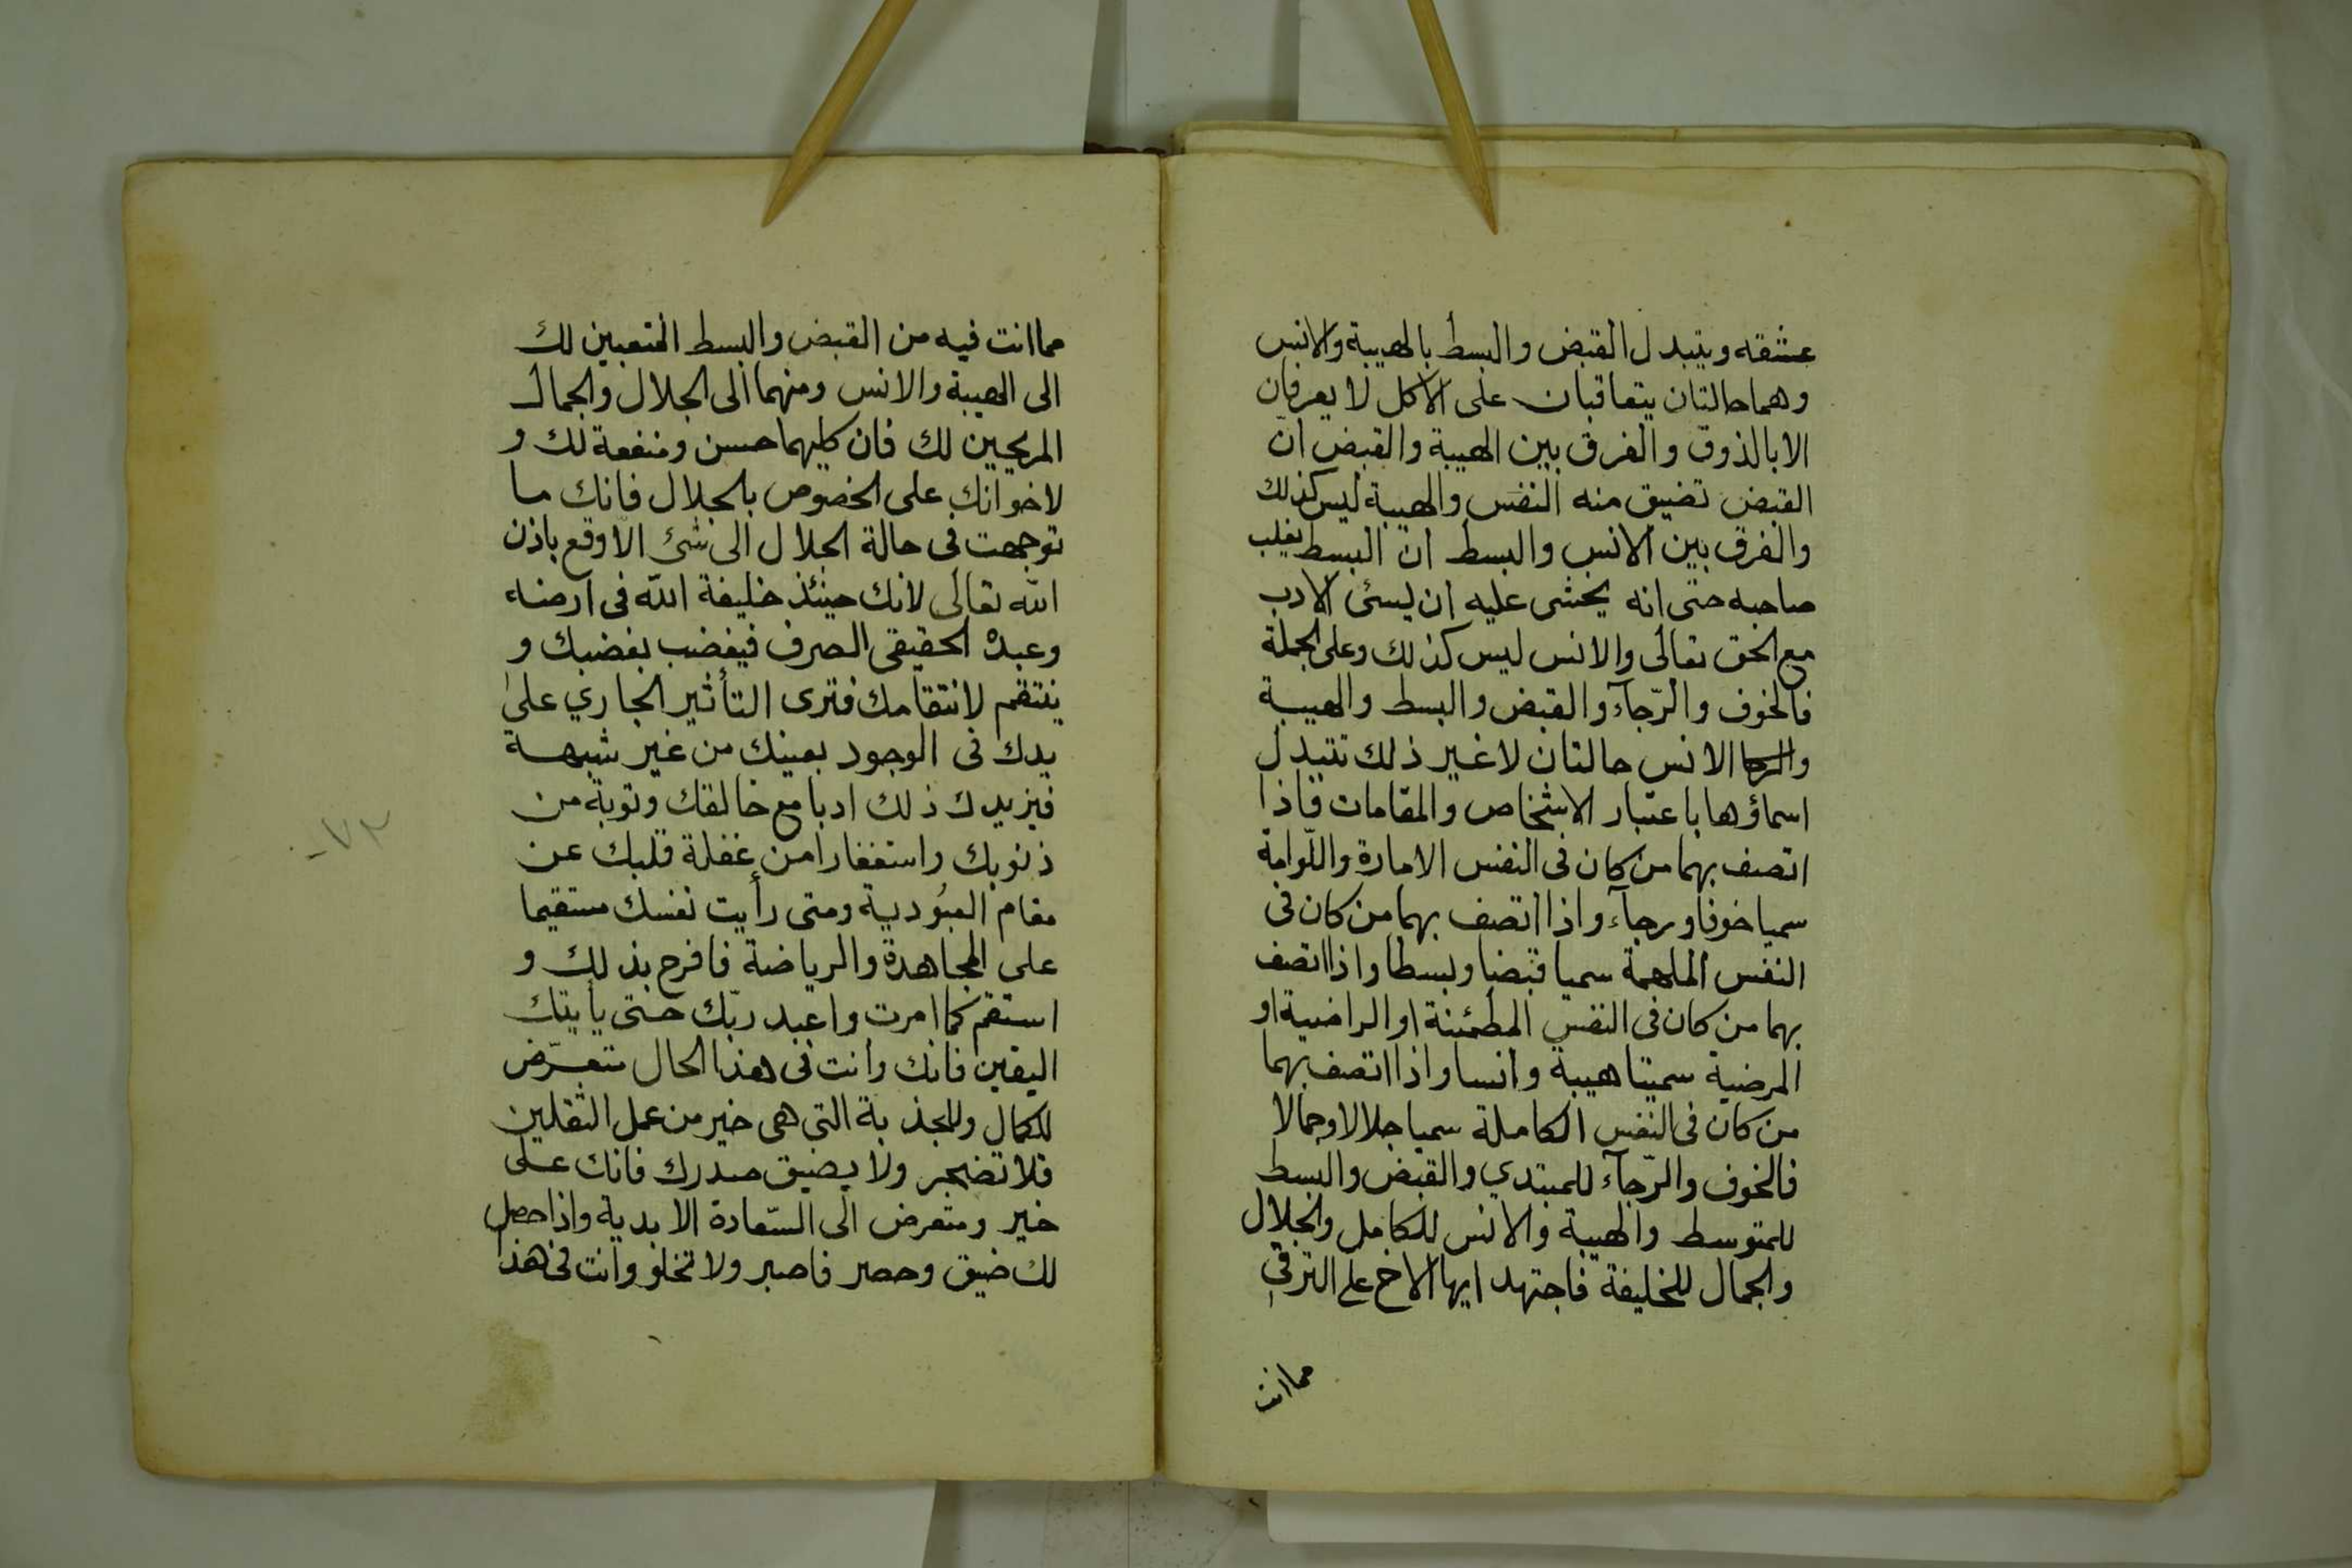 عشقه ويتبدل القبض والبسط بالهيبة والانس
وهما حالتان يتعاقبان على الاكل لا يعرفان
الا بالذوق والفرق بين الهيبة والقبض ان
القبض تضيق منه النفس والهيبة ليس كذلك
والفرق بين الانس والبسط ان البسط يغلب
صاحبه حتى انه يخشى عليه ان يسئ الادب
مع الحق تعالى والانس ليس كذلك وعلى الجملة
فالخوف والرّجآء والقبض والبسط والهيبة
والرجا الانس حالتان لا غير ذلك تتبدل
اسماؤها باعتبار الاشخاص والمقامات فاذا
اتصف بهما من كان فى النفس الامارة واللّوامة
سميا خوفا ورجآء واذا اتصف بهما من كان فى
النفس الملهمة سميا قبضا وبسطا واذا اتصف
بهما من كان فى النفس المطمئنة او الراضية او
المرضية سميتا هيبة وانسا واذا اتصف بهما
من كان فى النفس الكاملة سميا جلالا وجمالا
فالخوف والرّجآء للمبتدي والقبض والبسط
للمتوسط والهيبة والانس للكامل والجلال
والجمال للخليفة فاجتهد ايها الاخ على الترقي
مما انت
مما انت فيه من القبض والبسط المتعبين لك
الى الهيبة والانس ومنهما الى الجلال والجمال
المريحين لك فان كليهما حسن ومنفعة لك و
لاخوانك على الخصوص بالجلال فانك ما
توجهت فى حالة الجلال الى شئ الّا وقع باذن
الله تعالى لانك حينئذ خليفة الله فى ارضه
وعبده الحقيقى الصرف فيغضب بغضبك و
ينتقم لانتقامك فترى التأثير الجاري على
يدك فى الوجود بعينك من غير شبهة
فيزيدك ذلك ادبا مع خالقك وتوبة من
ذنوبك واستغفارا من غفلة قلبك عن
مقام العبُودية ومتى رأيت نفسك مستقيما
على المجاهدة والرياضة فافرح بذلك و
استقم كما امرت واعبد ربّك حتى يأيتك
اليقين فانك وانت فى هذا الحال متعرّض
للكمال وللجذبة التى هى خير من عمل الثقلين
فلا تضجر ولا يضيق صدرك فانك على
خير ومتعرض الى السّعادة الابدية واذا حصل
لك ضيق وحصر فاصبر ولا تخلو وانت فى هذا
٧٢